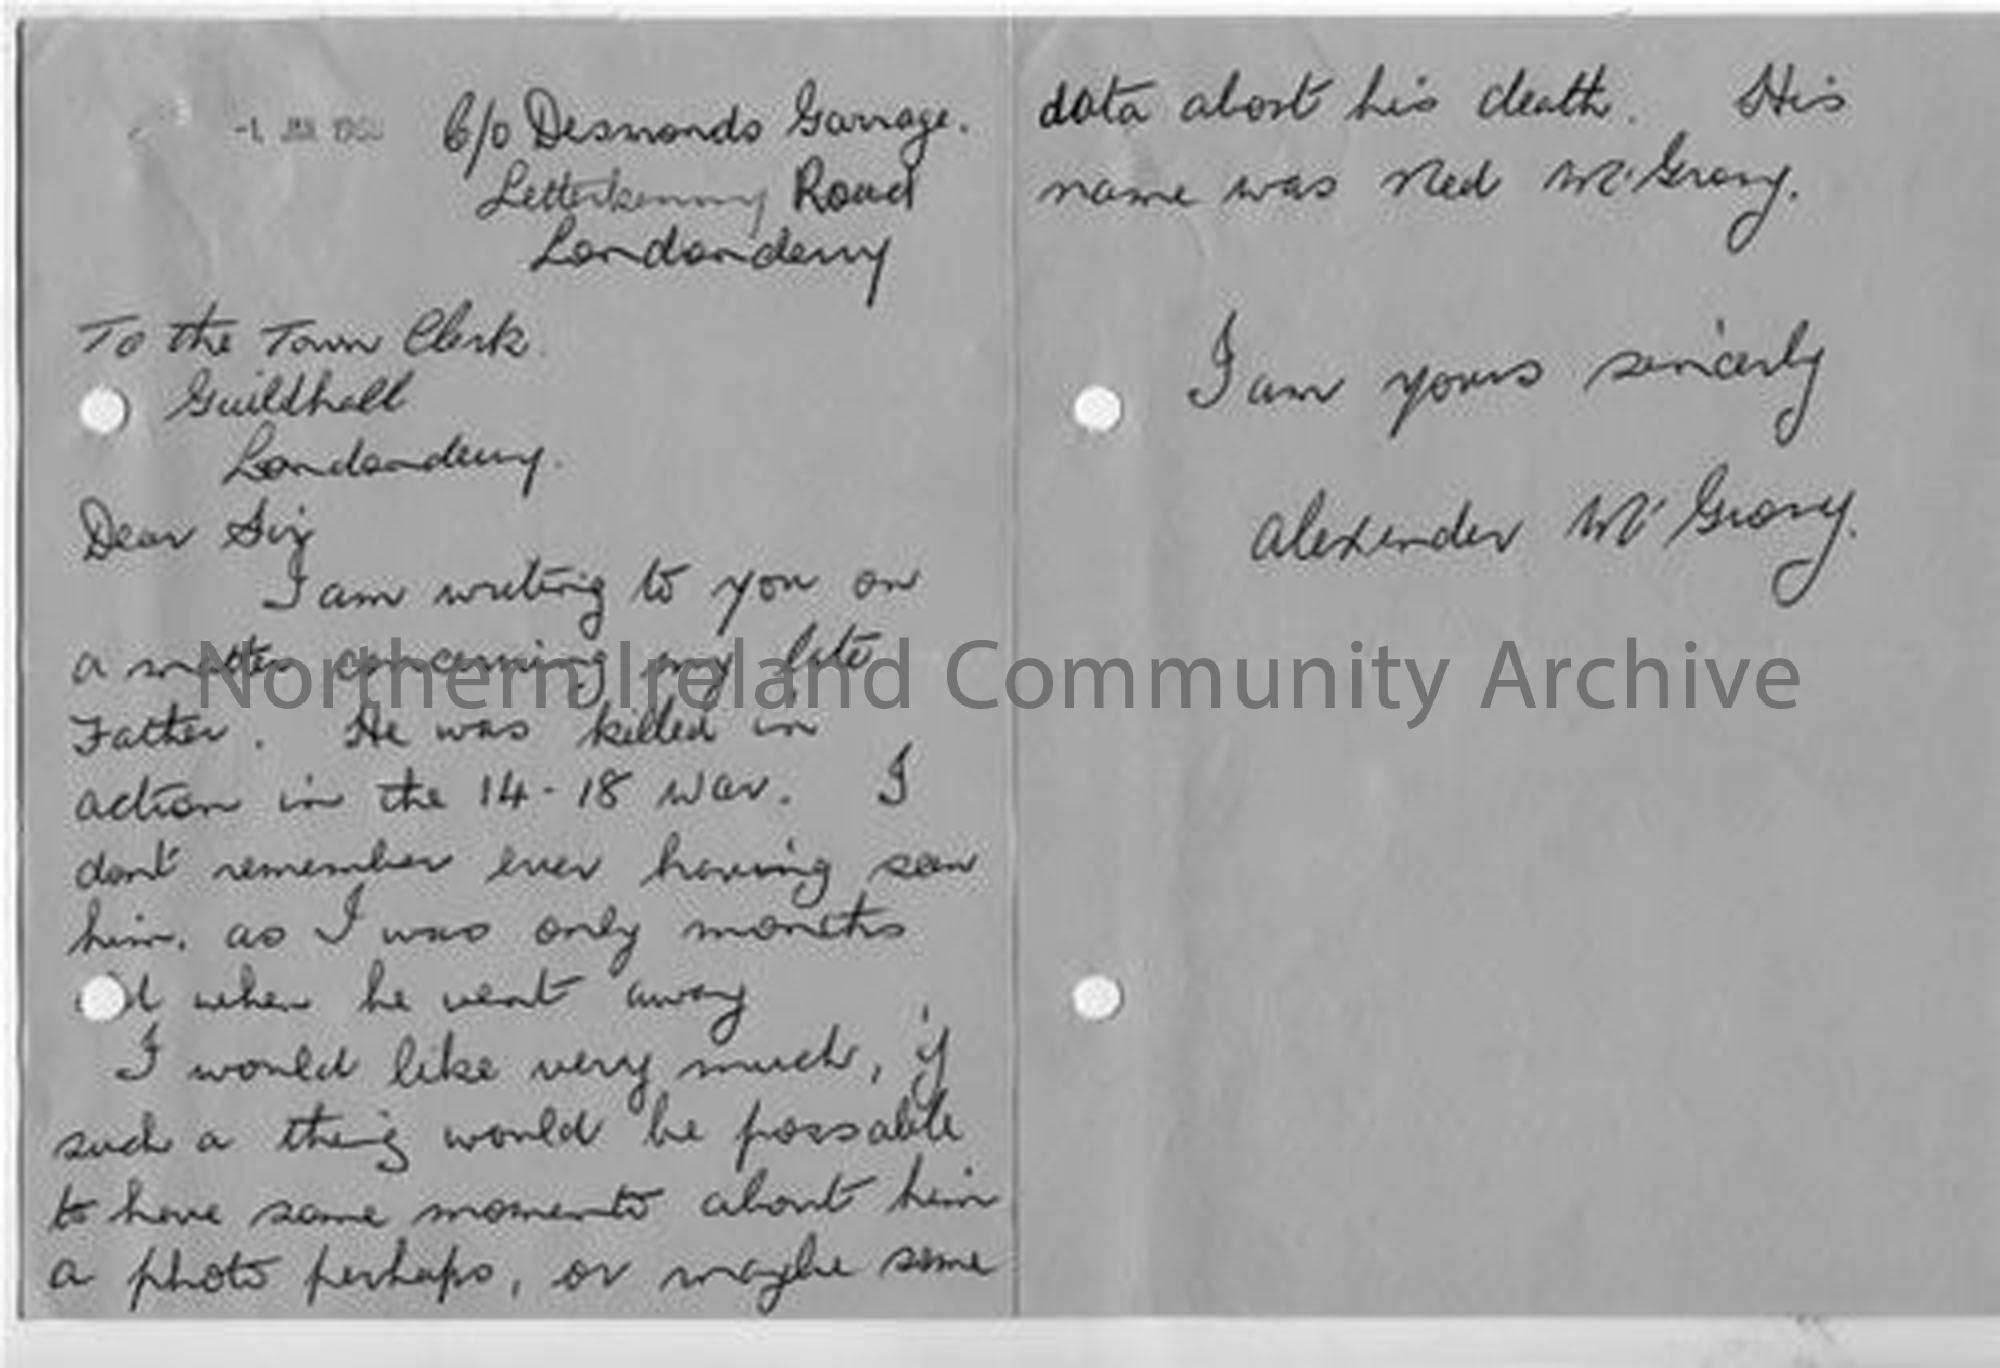 -1 JAN
C/o Desmonds Garrage.
Letterkenny Road
Londonderry
To the Town Clerk.
Guildhall
Londonderry.
Dear Sir
I am writing to you on
a matter concerning my late
Father. He was killed in
action in the 14-18 war. I
dont remember ever having seen
him. as I was only months
when he went away
I would like very much, if
such a thing would be possable
to have some momento about him
a photo perhaps, or maybe some
data abost his death. His
name was Ned McGrory.
I am yours sincerly
Alexender McGrory.
Northern Ireland Community Archive